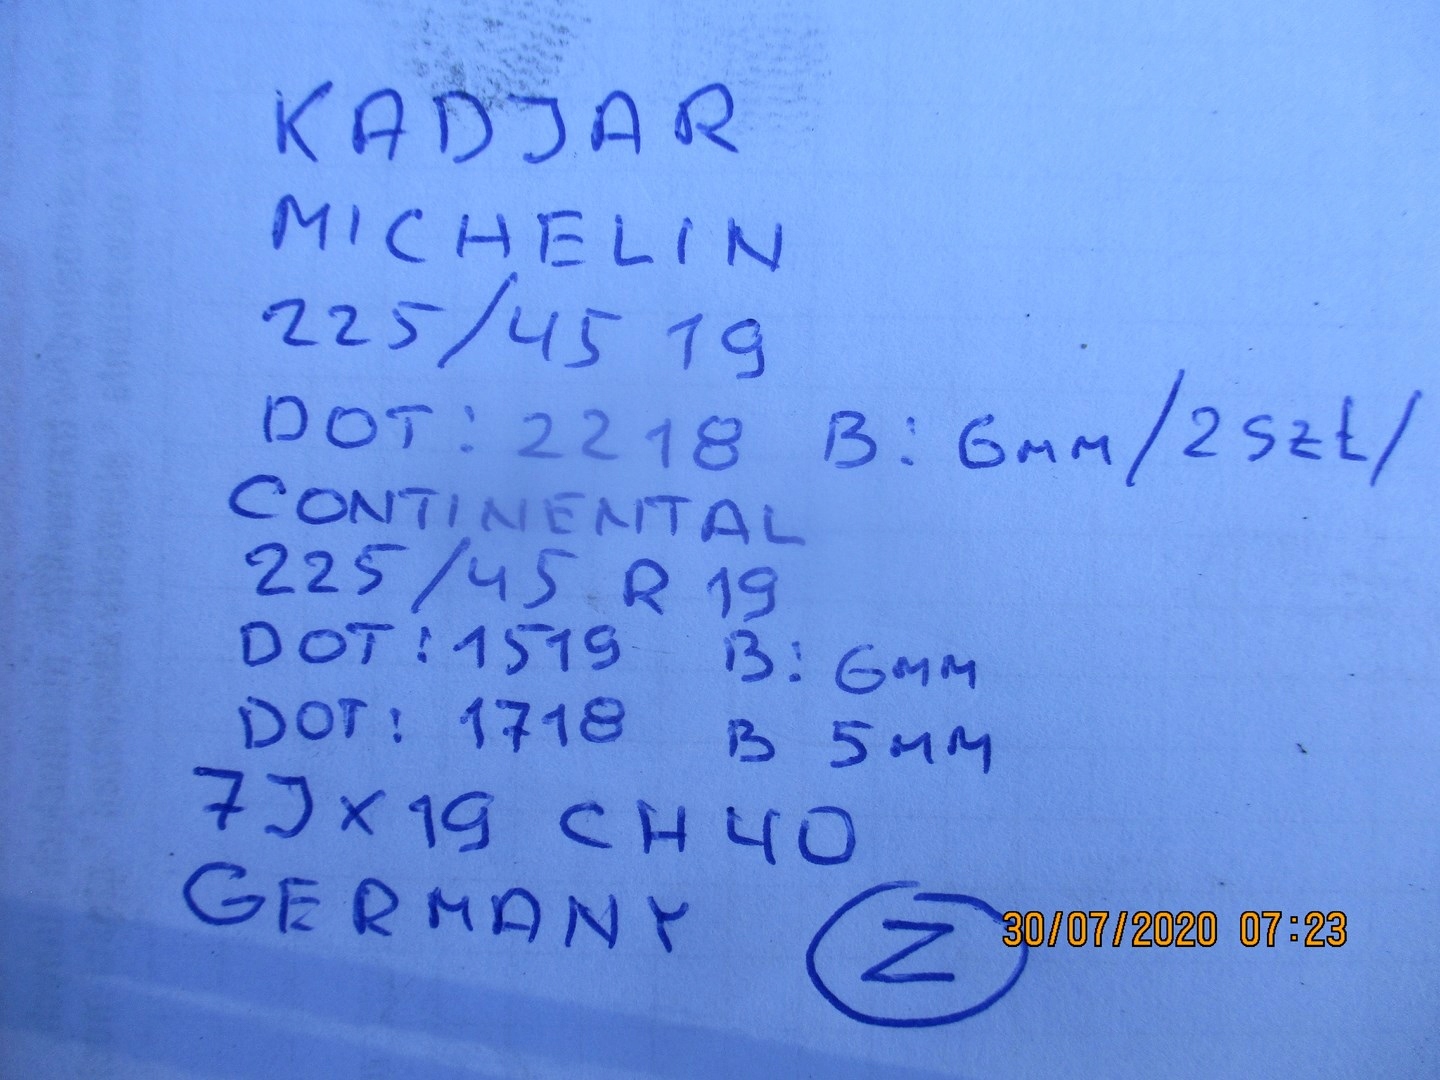 KADJAR
MICHELIN
225/45 19
DOT: 2218 B: 6mm/2szt/
CONTINENTAL
225/45 R 19
DOT: 1519 B: 6mm
DOT: 1718 B 5mm
7Jx19 CH40
GERMANY Z
30/07/2020 07:23